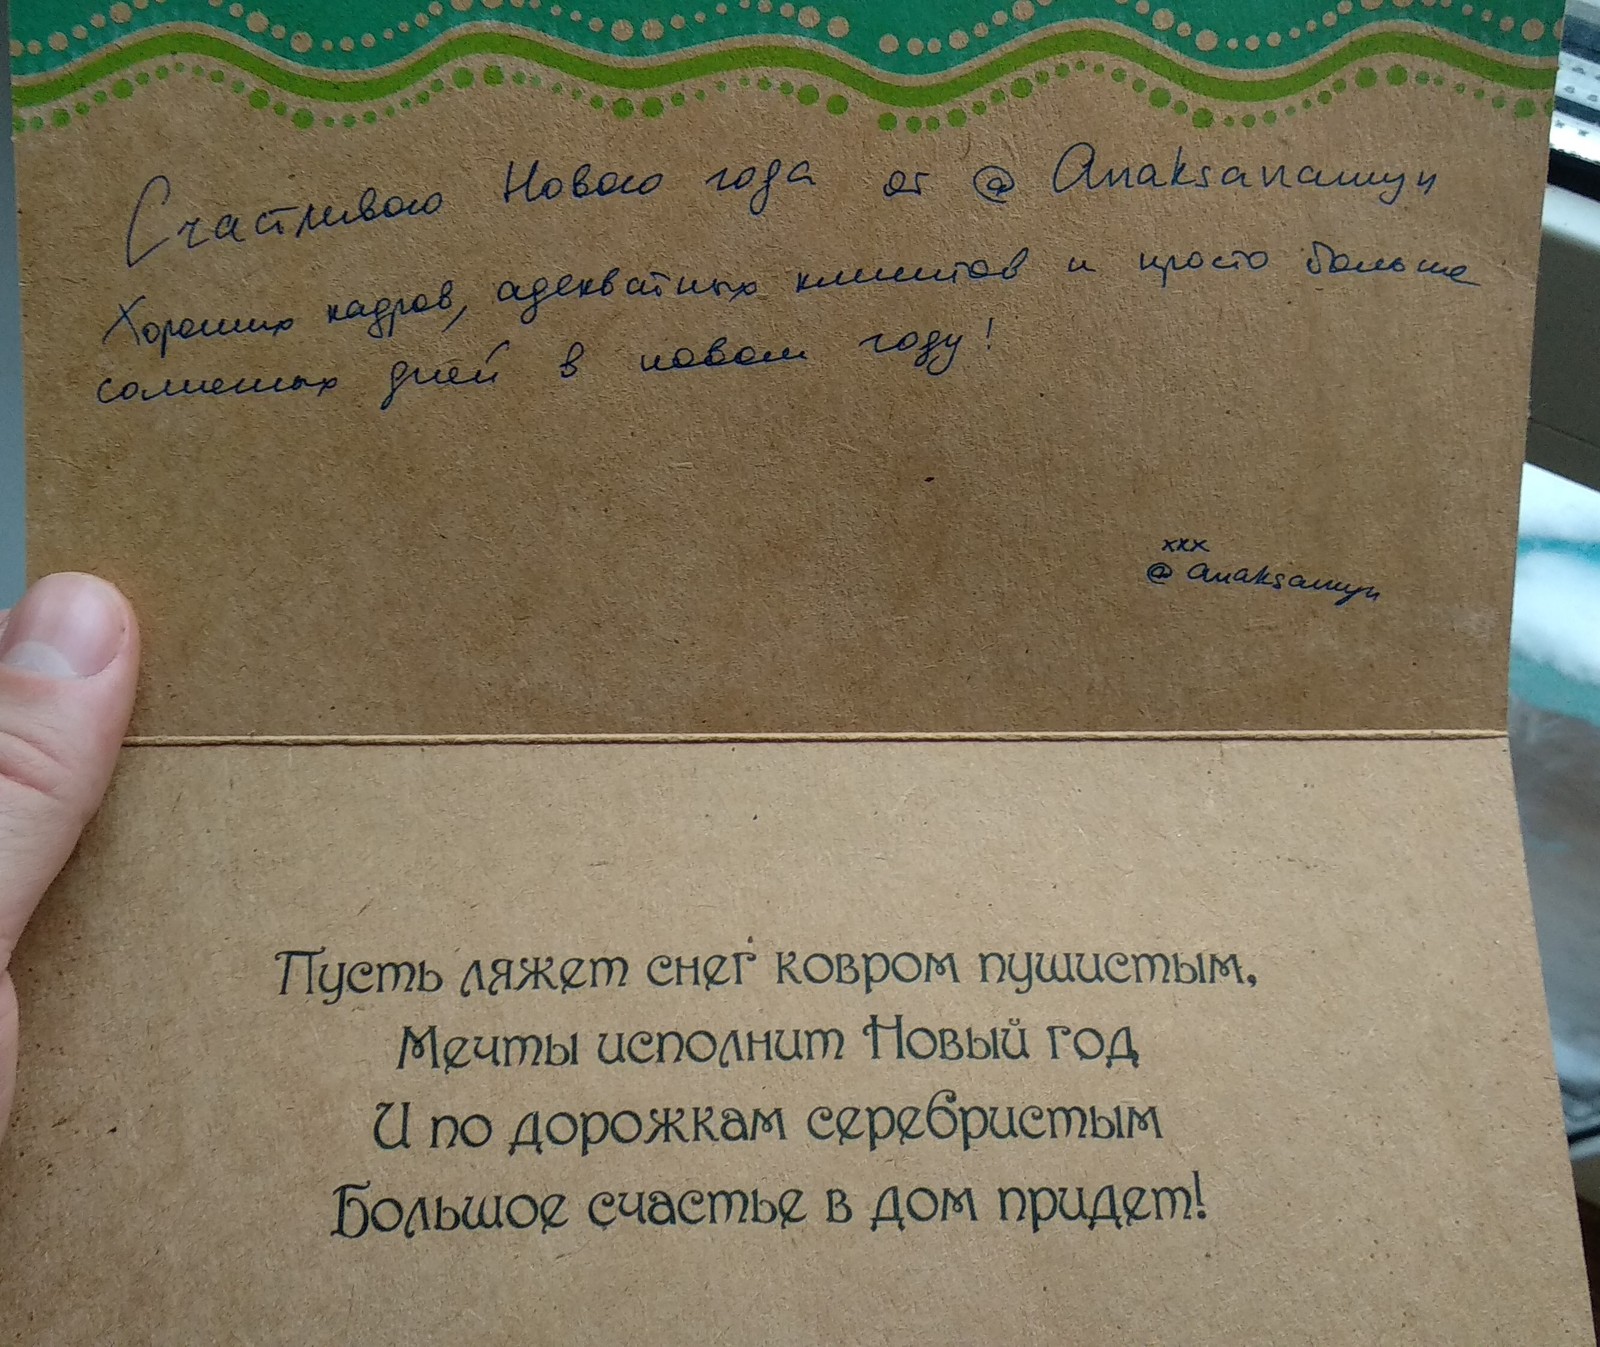 Счастливого Нового года от @ Anaksanamyn
Хороших кадров, адекватных клиентов и просто больше
солнечных дней в новом году!
xxx
@ anaksamyn
Пусть ляжет снег ковром пушистым,
Мечты исполнит Новый год
И по дорожкам серебристым
Большое счастье в дом придет!